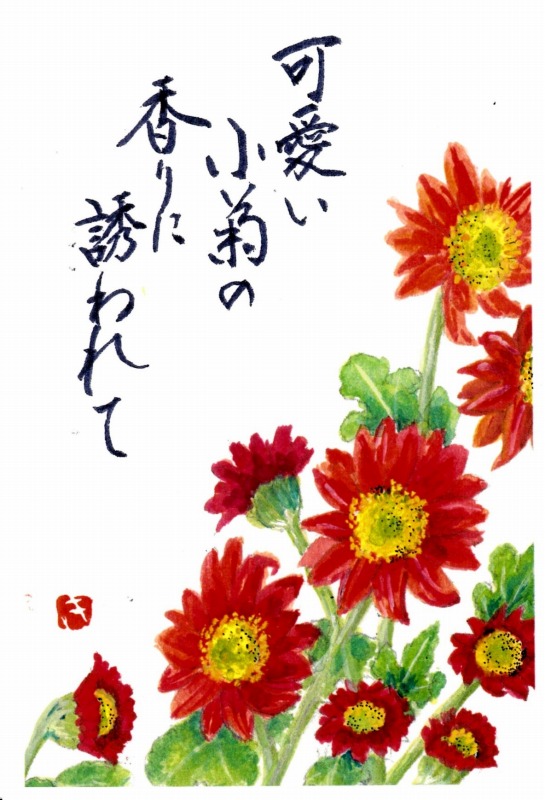 可愛い
小菊の
香りに
誘われて